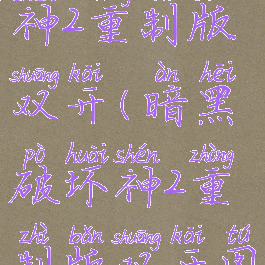 神2重制版
shuāng kāi àn hēi
双开(暗黑
pò huài shén zhòng
破坏神2重
zhì bǎn shuāng kāi tú
制版双开图